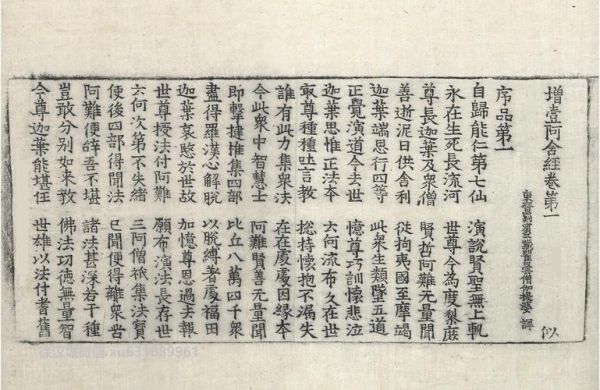 增壹阿含經卷第一 似
東晉罽賓三藏瞿曇僧伽提婆 譯
序品第一
自歸能仁第七仙 演說賢聖無上軌
永在生死長流河 世尊今為度黎庶
尊長迦葉及衆僧 賢哲阿難無量聞
善逝泥曰供舍利 從拘夷國至摩竭
迦葉端思行四等 此衆生類墜五道
正覺演道今去世 憶尊巧訓懷悲泣
迦葉思惟正法本 云何流布久在世
㝡尊種種吐言教 捴持懷抱不漏失
誰有此力集衆法 在在處處因緣本
今此衆中智慧士 阿難賢善無量聞
即擊揵椎集四部 比丘八萬四千衆
盡得羅漢心解脫 以脫縛著處福田
迦葉哀愍於世故 加憶尊恩過去報
世尊授法付阿難 願布演法長存世
云何次第不失緒 三阿僧祇集法寶
使後四部得聞法 已聞便得離衆苦
阿難便辭吾不堪 諸法甚深若干種
豈敢分別如來教 佛法功德無量智
今尊迦葉能堪任 世雄以法付耆舊
xu631689961